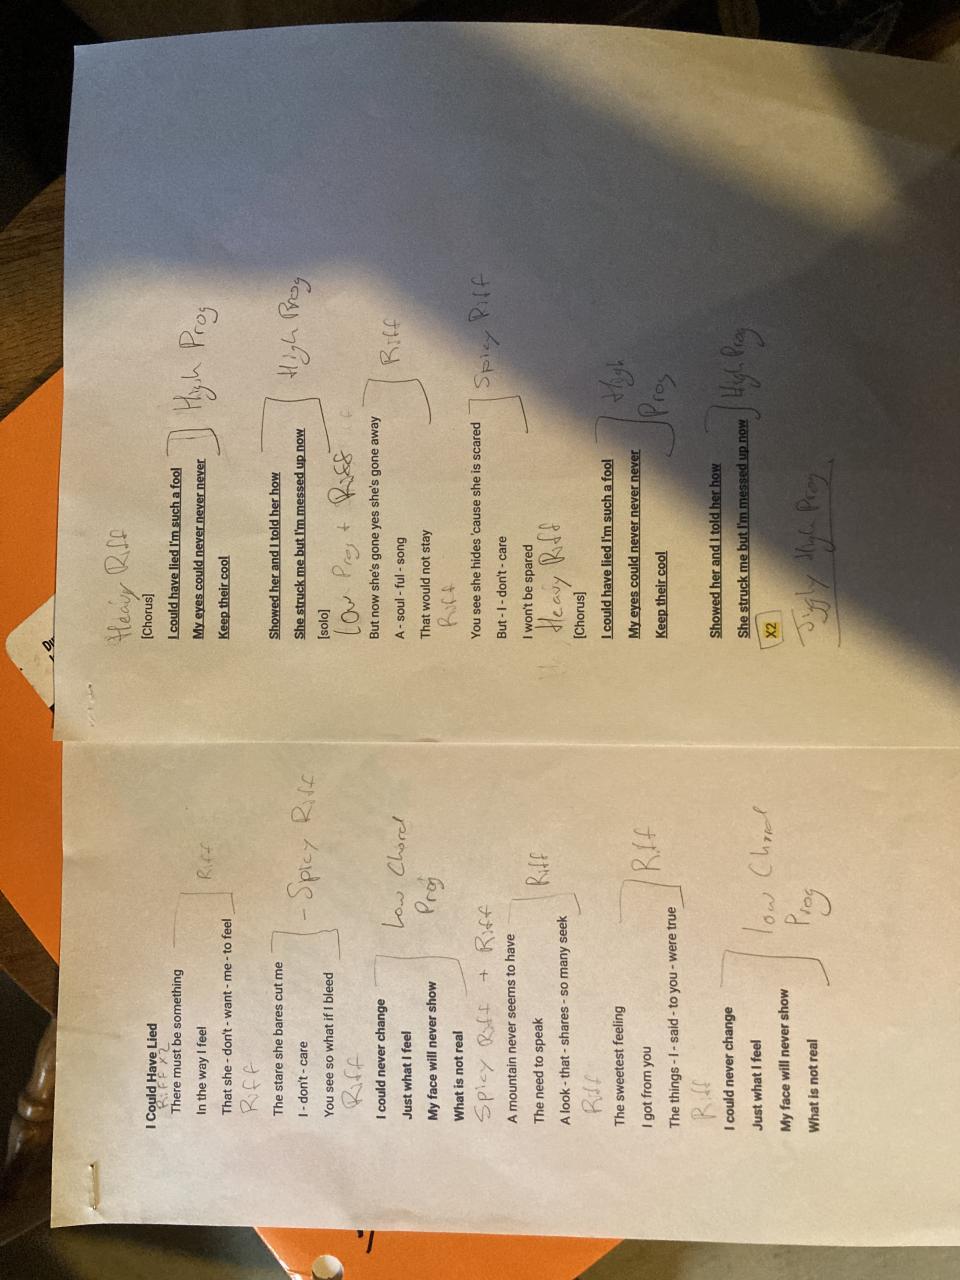 I Could Have Lied
Riff x2
There must be something
In the way I feel
Riff
That she - don't - want - me - to feel
Riff
The stare she bares cut me
I - don't - care
- Spicy Riff
You see so what if I bleed
Riff
I could never change
Just what I feel
Low Chord
Prog
My face will never show
What is not real
Spicy Riff + Riff
A mountain never seems to have
The need to speak
Riff
A look - that - shares - so many seek
Riff
The sweetest feeling
I got from you
Riff
The things - I - said - to you - were true
Riff
I could never change
Just what I feel
low Chord
Prog
My face will never show
What is not real
Heavy Riff
[Chorus]
I could have lied I'm such a fool
High Prog
My eyes could never never never
Keep their cool
Showed her and I told her how
High Prog
She struck me but I'm messed up now
[solo]
Low Prog + Riff
But now she's gone yes she's gone away
Riff
A - soul - ful - song
That would not stay
Riff
You see she hides 'cause she is scared
Spicy Riff
But - I - don't - care
I won't be spared
Heavy Riff
[Chorus]
I could have lied I'm such a fool
High
My eyes could never never never
Prog
Keep their cool
Showed her and I told her how
She struck me but I'm messed up now
High Prog
X2
High Prog